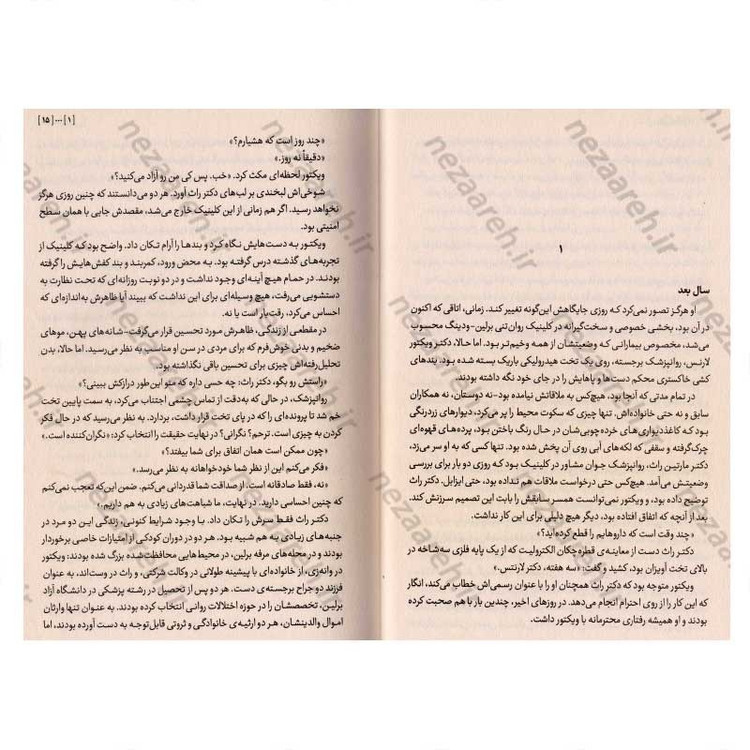 ۱
سال بعد
او هرگز تصور نمی‌کرد که روزی جایگاهش این‌گونه تغییر کند. زمانی، اتاقی که اکنون
در آن بود، بخشی خصوصی و سخت‌گیرانه در کلینیک روان‌تنی برلین-ودینگ محسوب
می‌شد، مخصوص بیمارانی که وضعیتشان از همه وخیم‌تر بود. اما حالا، دکتر ویکتور
لارنس، روانپزشک برجسته، روی یک تخت هیدرولیکی باریک بسته شده بود. بندهای
کشی خاکستری محکم دست‌ها و پاهایش را در جای خود نگه داشته بودند.
در تمام مدتی که آنجا بود، هیچ‌کس به ملاقاتش نیامده بود-نه دوستان، نه همکاران
سابق و نه حتی خانواده‌اش. تنها چیزی که سکوت محیط را پر می‌کرد، دیوارهای زردرنگی
بود که کاغذدیواری‌های خرده‌چوبی‌شان در حال رنگ باختن بود، پرده‌های قهوه‌ای
چرک‌گرفته و سقفی که لکه‌های آبی روی آن پخش شده بود. تنها کسی که به او سر می‌زد،
دکتر مارتین راث، روانپزشک جوان مشاور در کلینیک بود که روزی دو بار برای بررسی
وضعیتش می‌آمد. هیچ‌کس حتی درخواست ملاقات هم نداده بود، حتی ایزابل. دکتر راث
توضیح داده بود، و ویکتور نمی‌توانست همسر سابقش را بابت این تصمیم سرزنش کند.
بعد از آنچه که اتفاق افتاده بود، دیگر هیچ دلیلی برای این کار نداشت.
«چند وقت است که داروهایم را قطع کرده‌اید؟»
دکتر راث دست از معاینه‌ی قطره‌چکان الکترولیت که از یک پایه فلزی سه‌شاخه در
بالای تخت آویزان بود، کشید و گفت: «سه هفته، دکتر لارنتس.»
ویکتور متوجه بود که دکتر راث همچنان او را با عنوان رسمی‌اش خطاب می‌کند، انگار
که این کار را از روی احترام انجام می‌دهد. در روزهای اخیر، چندین بار با هم صحبت کرده
بودند و او همیشه رفتاری محترمانه با ویکتور داشت.
[۱]...[۱۵]
«چند روز است که هشیارم؟»
«دقیقاً نه روز.»
ویکتور لحظه‌ای مکث کرد. «خب، پس کی من رو آزاد می‌کنید؟»
شوخی‌اش لبخندی بر لب‌های دکتر راث آورد. هر دو می‌دانستند که چنین روزی هرگز
نخواهد رسید. اگر هم زمانی از این کلینیک خارج می‌شد، مقصدش جایی با همان سطح
امنیتی بود.
ویکتور به دست‌هایش نگاه کرد و بندها را آرام تکان داد. واضح بود که کلینیک از
تجربه‌های گذشته درس گرفته بود. به محض ورود، کمربند و بند کفش‌هایش را گرفته
بودند. در حمام هیچ آینه‌ای وجود نداشت و در دو نوبت روزانه‌ای که تحت نظارت به
دستشویی می‌رفت، هیچ وسیله‌ای برای این نداشت که ببیند آیا ظاهرش به‌اندازه‌ای که
احساس می‌کرد، رقت‌بار است یا نه.
در مقطعی از زندگی، ظاهرش مورد تحسین قرار می‌گرفت-شانه‌های پهن، موهای
ضخیم و بدنی خوش‌فرم که برای مردی در سن او مناسب به نظر می‌رسید. اما حالا، بدن
تحلیل‌رفته‌اش چیزی برای تحسین باقی نگذاشته بود.
«راستش رو بگو، دکتر راث؛ چه حسی داره که منو این‌طور درازکش ببینی؟»
روانپزشک، در حالی که به‌دقت از تماس چشمی اجتناب می‌کرد، به سمت پایین تخت
خم شد تا پرونده‌ای را که در پای تخت قرار داشت، بردارد. به نظر می‌رسید که در حال فکر
کردن به چیزی است. ترحم؟ نگرانی؟ در نهایت حقیقت را انتخاب کرد: «نگران‌کننده است.»
«چون ممکن است همان اتفاق برای شما بیفتد؟»
«فکر می‌کنم این از نظر شما خودخواهانه به نظر می‌رسد.»
«نه، فقط صادقانه است. از صداقت شما قدردانی می‌کنم. ضمن این‌که تعجب نمی‌کنم
که چنین احساسی دارید. در نهایت، ما شباهت‌های زیادی به هم داریم.»
دکتر راث فقط سرش را تکان داد. با وجود شرایط کنونی، زندگی این دو مرد در
جنبه‌های زیادی به هم شبیه بود. هر دو در دوران کودکی از امتیازات خاصی برخوردار
بودند و در محله‌های مرفه برلین، در محیط‌هایی محافظت‌شده بزرگ شده بودند: ویکتور
در وانه‌زی، از خانواده‌ای با پیشینه طولانی در وکالت شرکتی، و راث در وست‌اند، به عنوان
فرزند دو جراح برجسته‌ی دست. هر دو پس از تحصیل در رشته پزشکی در دانشگاه آزاد
برلین، تخصصشان را در حوزه اختلالات روانی انتخاب کرده بودند. به عنوان تنها وارثان
اموال والدینشان، هر دو ارثیه‌ی خانوادگی و ثروتی قابل‌توجه به دست آورده بودند، اما
nezaareh.ir